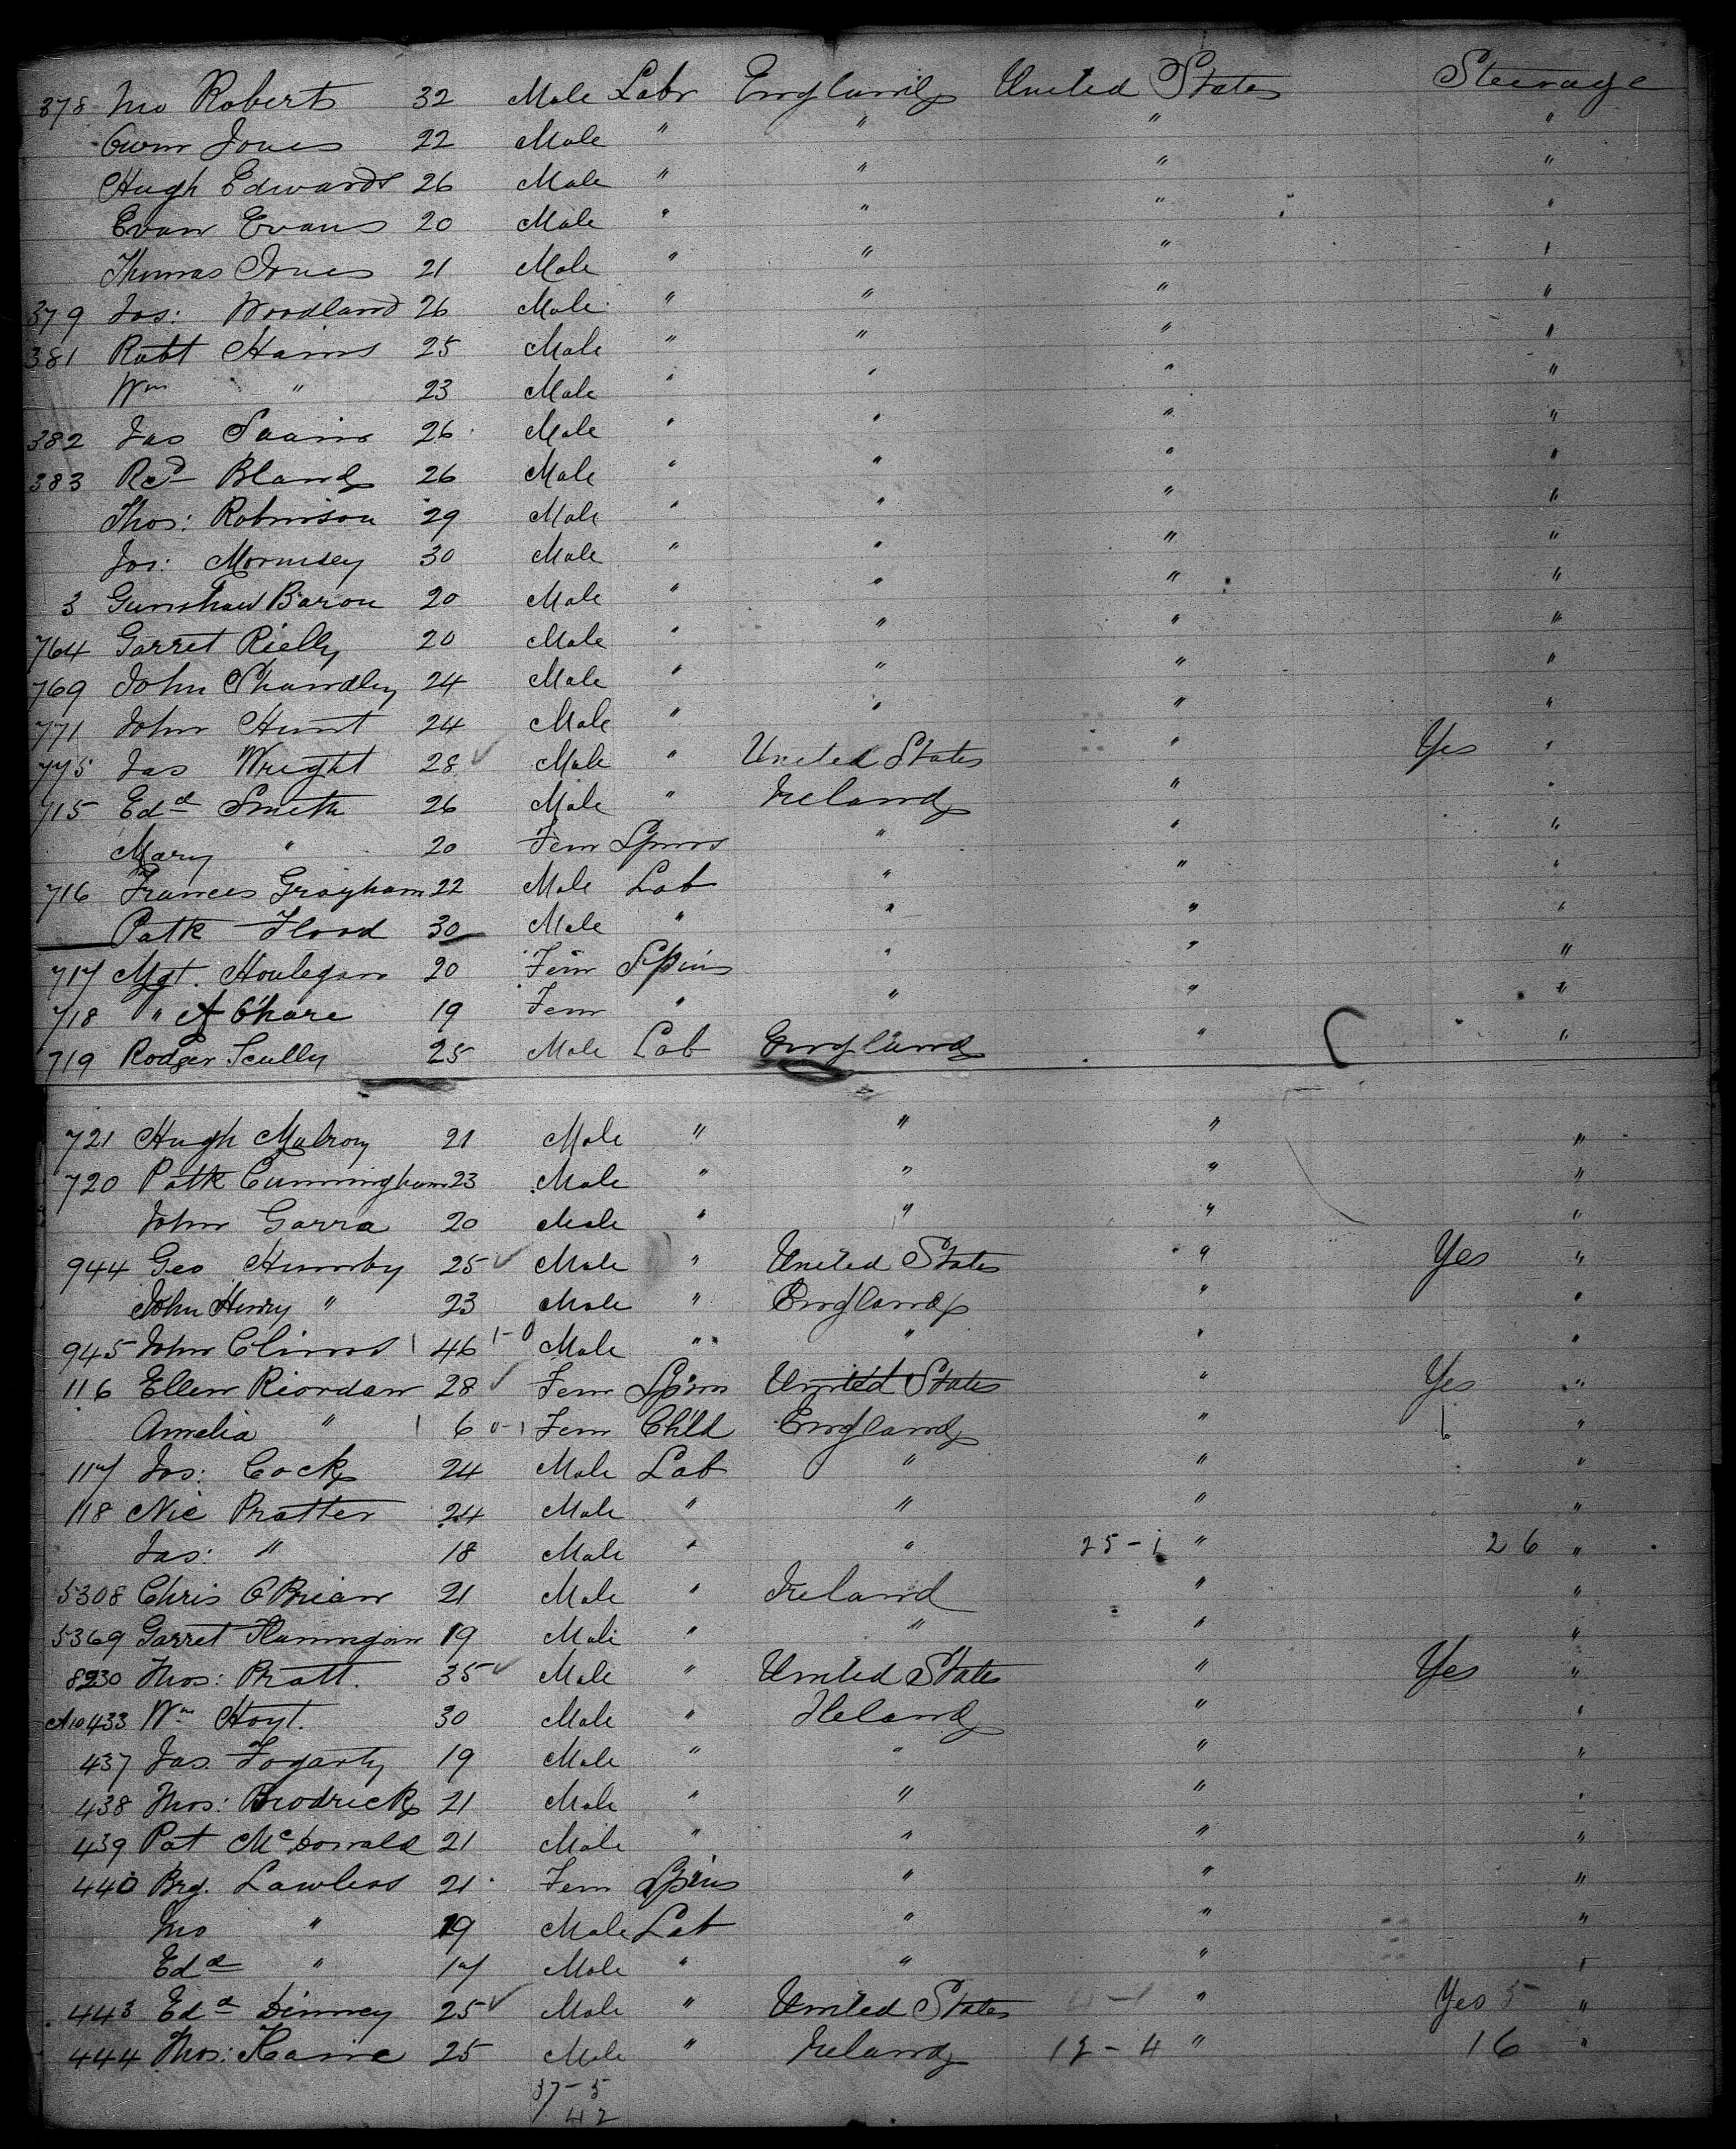 378 Jno Roberts 32 Male Labr England United States Steerage
Owen Jones 22 Male " " " "
Hugh Edwards 26 Male " " " "
Evan Evans 20 Male " " " "
Thomas Jones 21 Male " " " "
379 Jos: Woodland 26 Male " " " "
381 Robt Hains 25 Male " " " "
Wm " 23 Male " " " "
382 Jas 26 Male " " " "
383 Rcd Bland 26 Male " " " "
Thos: Robinson 29 Male " " " "
Jos: Morrisey 30 Male " " " "
3 Gunshaw Baron 20 Male " " " "
764 Garret Rielly 20 Male " " " "
769 John Shandley 24 Male " " " "
771 John Hunt 24 Male " " " "
775 Jas Wright 28 ✓ Male " United States " Yes "
715 Edd Smith 26 Male " Ireland " "
Mary " 20 Fem Spins " " "
716 Frances Grayham 22 Male Lab " " "
Patk Flood 30 Male " " " "
717 Mgt. Houlegan 20 Fem Spins " " "
718 " A O'hare 19 Fem " " " "
719 Rodger Scully 25 Male Lab England " "
721 Hugh Mulroy 21 Male " " " "
720 Patk Cunningham 23 Male " " " "
John Garra 20 Male " " " "
944 Geo Humby 25 ✓ Male " United States " Yes "
John Henry " 23 Male " England " "
945 John Clinns 46 1-0 Male " " " "
116 Ellen Riordan 28 ✓ Fem Spins United States " Yes "
Amelia " 6 0-1 Fem Child England " "
117 Jos: Cock 24 Male Lab " " "
118 Nic Pratter 24 Male " " " "
Jas: " 18 Male " " 25-1 " 26 "
5308 Chris O'Brian 21 Male " Ireland " "
5369 Garret Flanningan 19 Male " " " "
8230 Thos: Pratt. 35 ✓ Male " United States " Yes "
433 Wm Hoyt. 30 Male " Ireland " "
437 Jas. Fogarty 19 Male " " " "
438 Thos: Brodrick 21 Male " " " "
439 Pat McDonald 21 Male " " " "
440 Brg. Lawless 21 Fem Spins " " "
Jno " 19 Male Lab " " "
Edd " 17 Male " " " "
443 Edd Dinney 25 ✓ Male " United States " Yes 5 "
444 Thos: Kaine 25 Male " Ireland 12-4 " 16 "
37-5
42